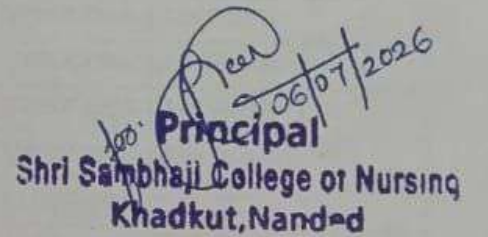 06/07/2026
for.
Principal
Shri Sambhaji College of Nursing
Khadkut, Nanded